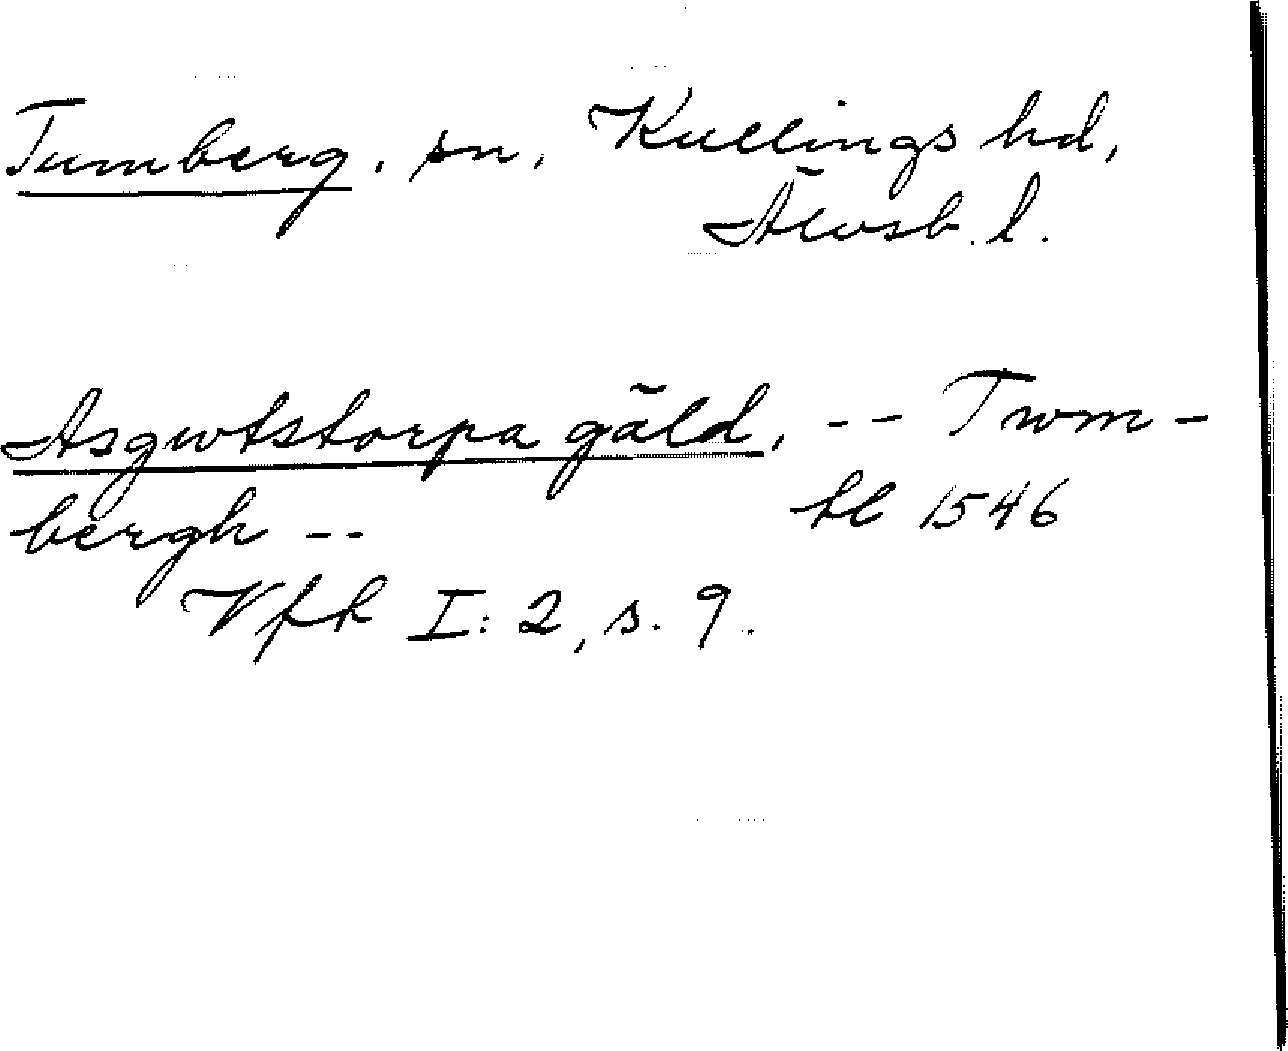 Tumberg, sn, Kullings hd,
Älvsb. l.
Asgwtstorpa gäld, -- Twm-
bergh -- hl 1546
Vfh I: 2, s. 9.